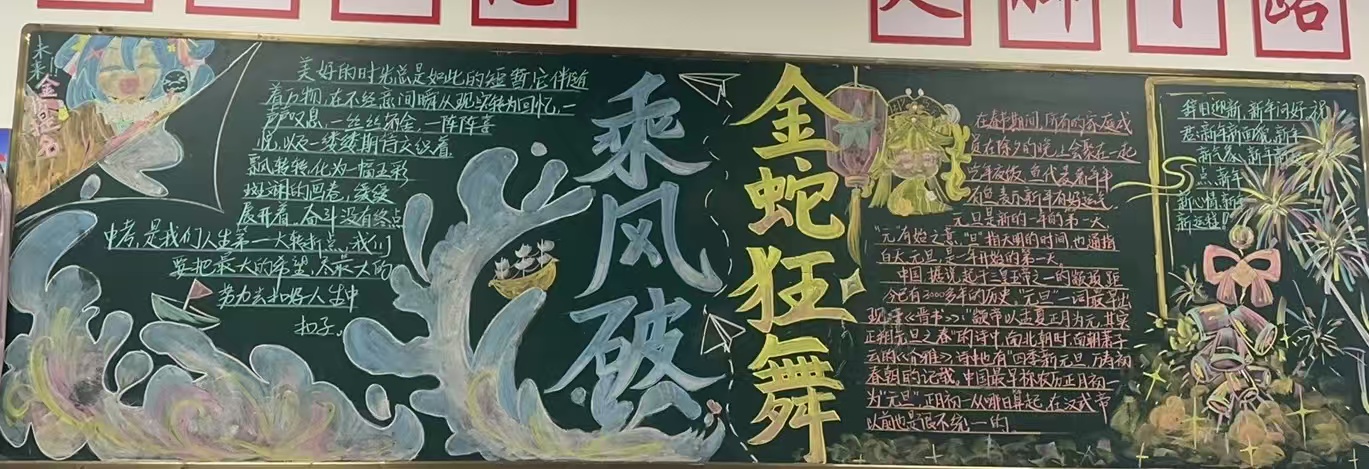 未来
美好的时光总是如此的短暂它伴随
着万物,在不经意间瞬从现实转为回忆,一
声叹息,一丝丝
悦,以及一缕缕期待交织着
转化为一幅五彩
斑斓的画卷,缓缓
展开着,奋斗没有终点
中考,是我们人生第一大转折点,我们
要把最大的希望,尽最大的
努力去扣好人生中
扣子。
乘风破
金蛇狂舞
在春节期间,所有的家庭成
员在除夕的晚上会聚在一起
吃年夜饭,
元旦是新的一年的第一天
"元"有始之意,"旦"指天明的时间,也通指
白天,元旦,是一年开始的第一天。
中国
今已有3000多年的历史,"元旦"一词最早出
现于《晋书》:"
正朔元旦之春"的诗中,南北朝时,南朝萧子
云的《介雅》诗中也有"四季新元旦,万寿初
春朝"的记载,中国最早称农历正月初一
为"元旦",正月初一从哪日算起,在汉武帝
以前也是很不统一的
辞旧迎新,新年问好,祝
您:新年新面貌,新年
新气象,新年新
点,新年
新心情,新年
新运程!